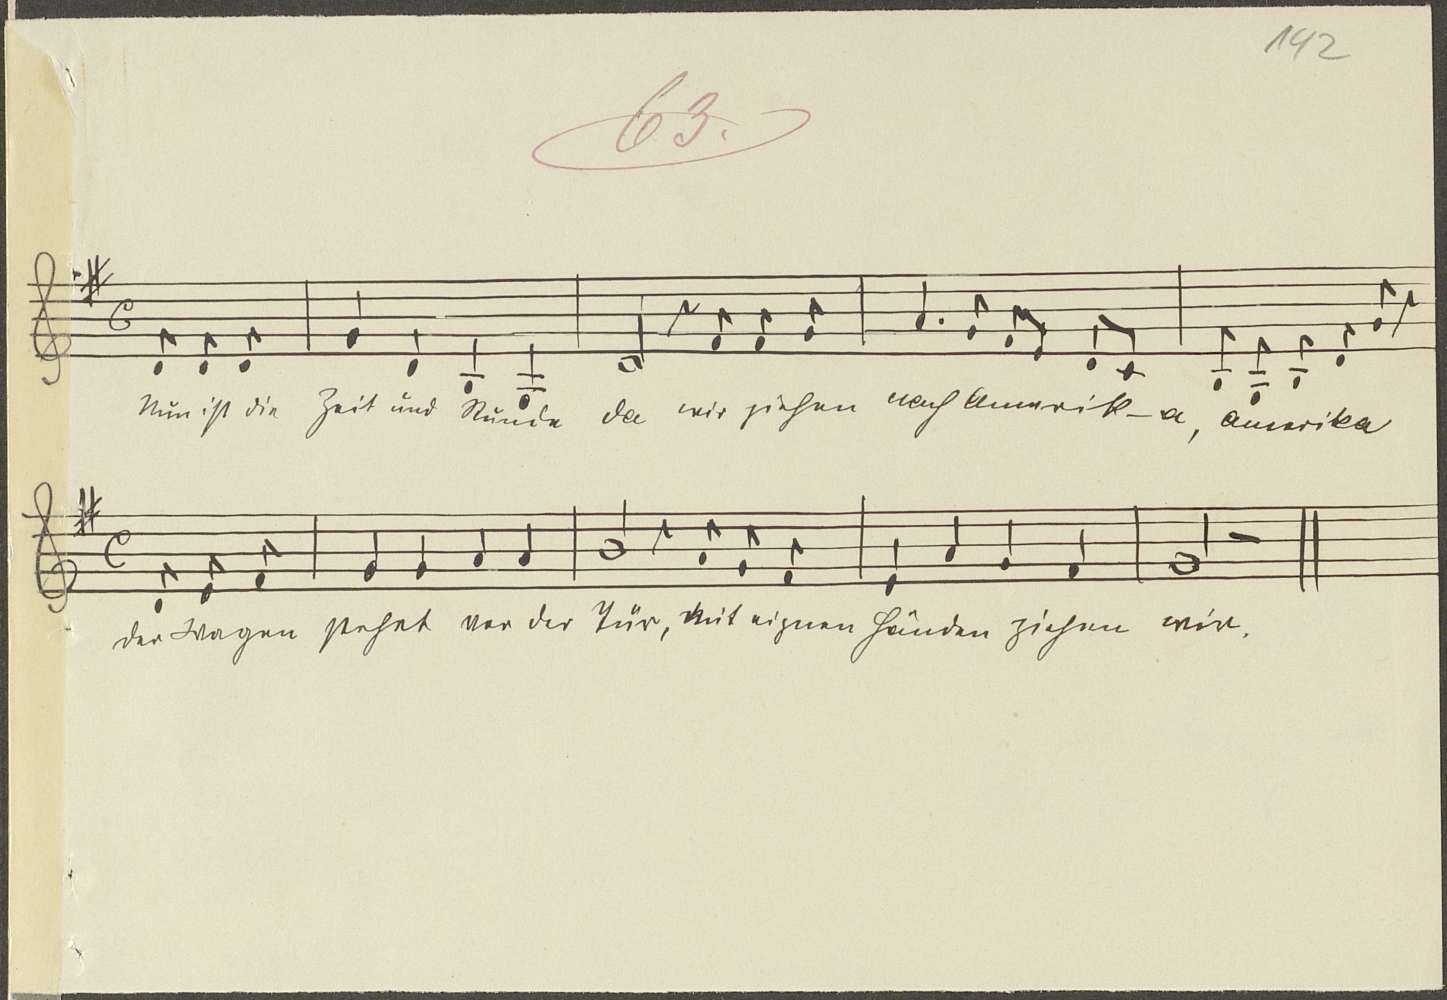 142
63.
Nun ist die Zeit und Stunde da wir ziehen nach Amerik-a, amerika
der Wagen stehet vor der Tür, mit eignen Händen ziehen wir.